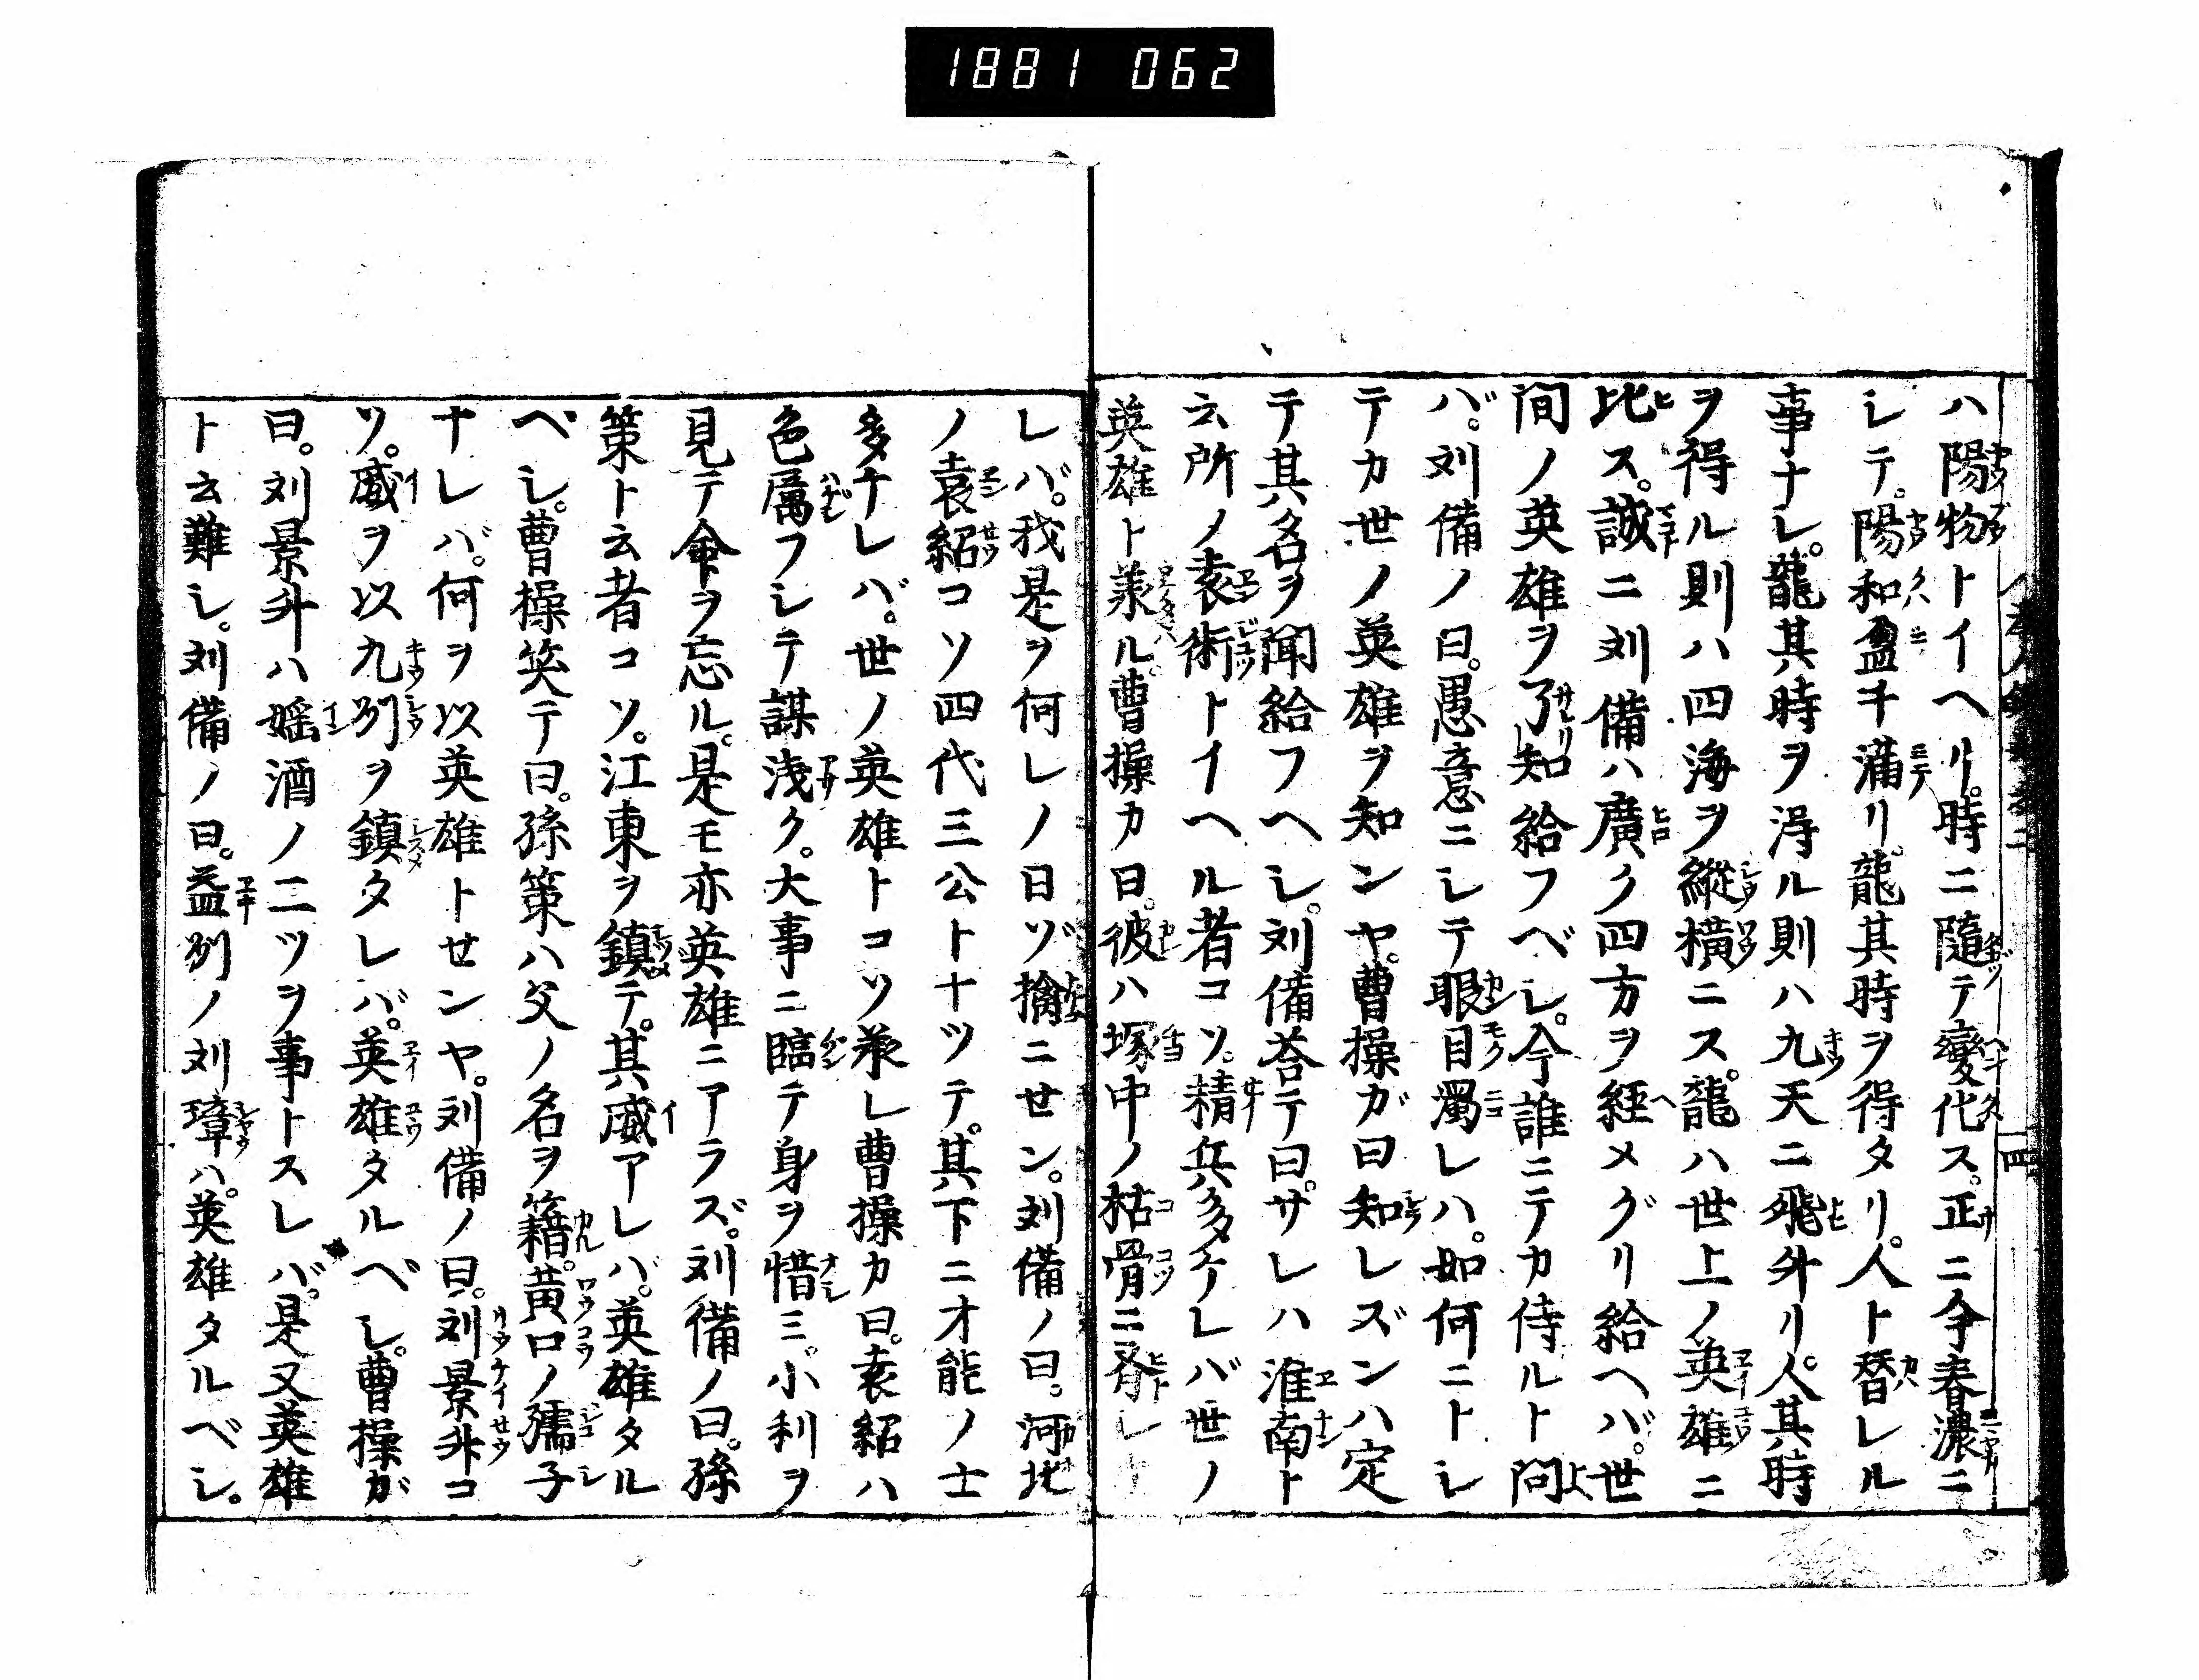 1881 062
ハ陽物トイヘリ。時ニ隨テ變化ス。正ニ今春濃ニ
シテ。陽和盈チ滿リ。龍其時ヲ得タリ。人ト替レル
事ナシ。龍其時ヲ得ル則ハ九天ニ飛升リ。人其時
ヲ得ル則ハ四海ヲ縱橫ニス。龍ハ世上ノ英雄ニ
比ス。誠ニ刘備ハ廣ク四方ヲ経メグリ給ヘバ。世
間ノ英雄ヲ了知給フベシ。今誰ニテカ侍ルト問
バ。刘備ノ曰。愚意ニシテ眼目濁レハ。如何ニトシ
テカ世ノ英雄ヲ知ンヤ。曹操ガ曰知レズンハ定
テ其名ヲ聞給フヘシ。刘備荅テ曰。サレハ淮南ト
云所ノ袁術トイヘル者コソ。精兵多ケレバ世ノ
英雄ト羕ル。曹操カ曰。彼ハ塚中ノ枯骨ニ脊シト
レバ。我是ヲ何レノ日ゾ擒ニせン。刘備ノ曰。河北
ノ袁紹コソ四代三公トナツテ。其下ニオ能ノ士
多ケレバ。世ノ英雄トコソ羕レ曹操カ曰。袁紹ハ
色属フシテ謀浅ク。大事ニ臨テ身ヲ惜ミ。小利ヲ
見テ命ヲ忘ル。是モ亦英雄ニアラズ。刘備ノ曰。孫
策ト云者コソ。江東ヲ鎮テ。其威アレバ。英雄タル
ベシ。曹操笑テ曰。孫策ハ父ノ名ヲ籍。黃口ノ孺子
ナレバ。何ヲ以英雄トせンヤ。刘備ノ曰。刘景升コ
ソ。威ヲ以九州ヲ鎮タレバ。英雄タルベシ。曹操ガ
曰。刘景升ハ婬酒ノ二ツヲ事トスレバ。是又英雄
ト云難シ。刘備ノ曰。益州ノ刘璋ハ。英雄タルベシ。